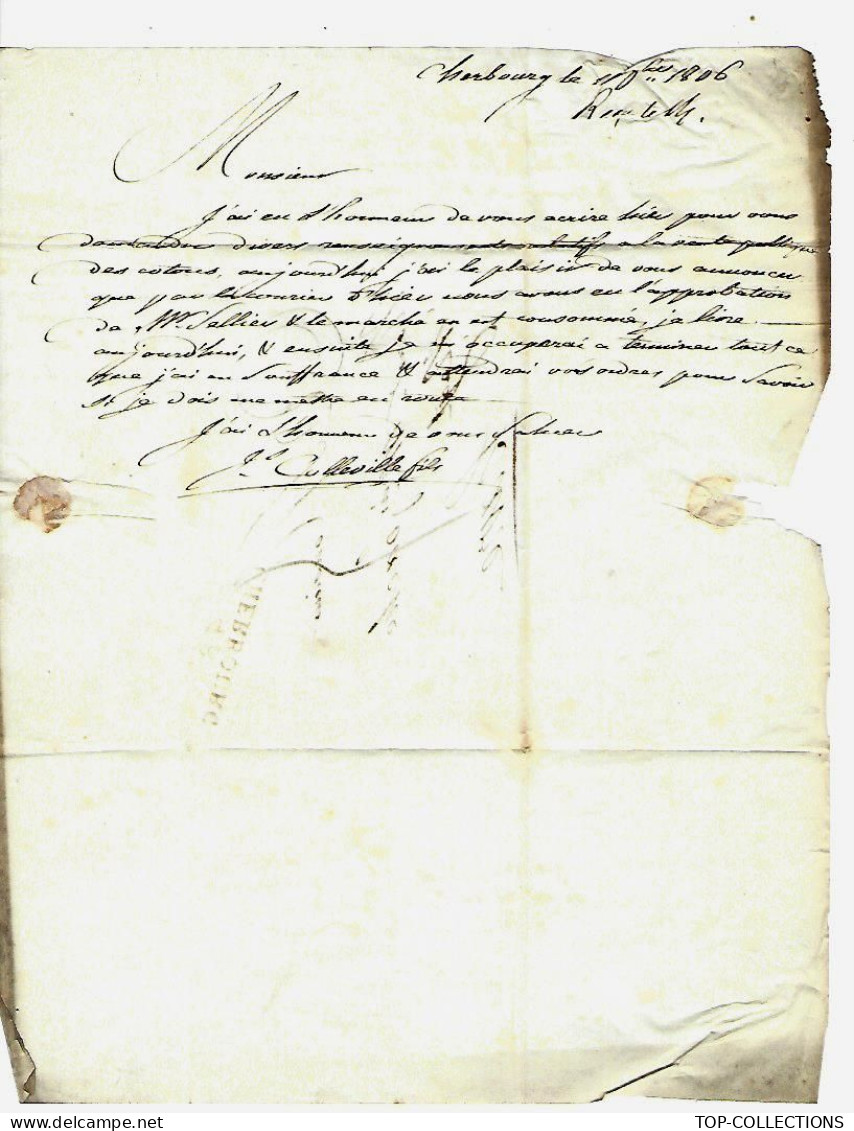 Cherbourg le 1806
Monsieur
J'ai eu l'honneur de vous ecrire hier pour vous
demander divers renseignements relatifs a la vente publique
des cotons, aujourd'hui j'ai le plaisir de vous annoncer
que par le courier d'hier nous avons eu l'approbation
de Mr. Sellier & le marché en est consommé, je livre
aujourd'hui, & ensuite je m'occuperai a terminer tout ce
que j'ai en Souffrance & attendrai vos ordres pour Savoir
si je dois me mettre en route
J'ai l'honneur de vous Saluer
Colleville fils
CHERBOURG
TOP-COLLECTIONS